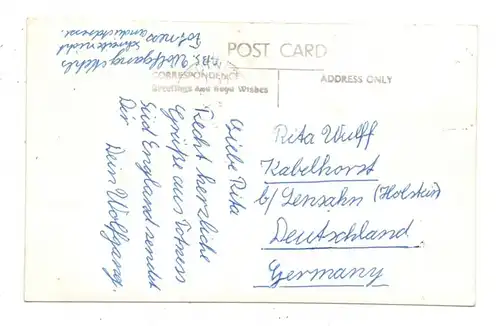 POST CARD
CORRESPONDENCE
Greetings and Good Wishes
ADDRESS ONLY
Liebe Rita
Recht herzliche
Grüße aus Totness
Süd England sendet
Dir Dein Wolfgang.
Wolfgang
Rita Wulff
Kabelhorst
b/ Lensahn (Holstein)
Deutschland
Germany